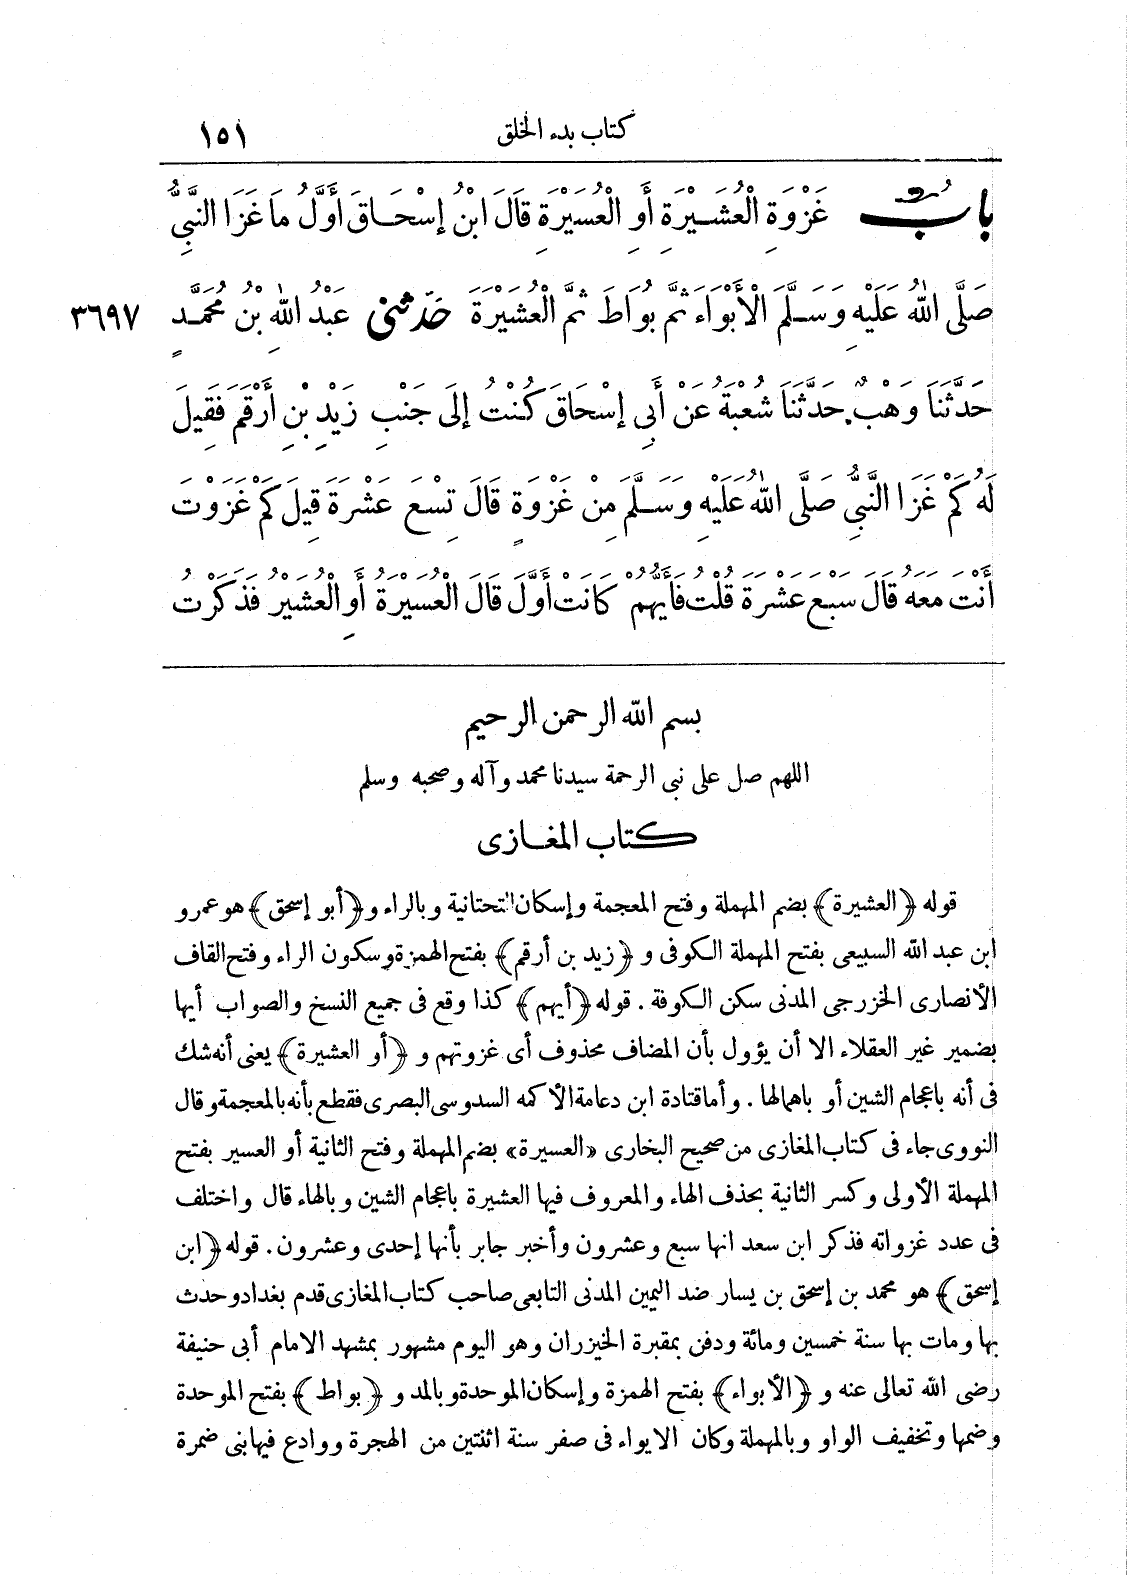 كتاب بدء الخلق ١٥١
بابُ غَزْوَةِ الْعُشَيْرَةِ أَوِ الْعُسَيْرَةِ قَالَ ابْنُ إِسْحَاقَ أَوَّلُ مَا غَزَا النَّبِيُّ
صَلَّى اللهُ عَلَيْهِ وَسَلَّمَ الْأَبْوَاءَ ثُمَّ بُوَاطَ ثُمَّ الْعُشَيْرَةَ حَدَّثَنِي عَبْدُ اللهِ بْنُ مُحَمَّدٍ ٣٦٩٧
حَدَّثَنَا وَهْبٌ حَدَّثَنَا شُعْبَةُ عَنْ أَبِي إِسْحَاقَ كُنْتُ إِلَى جَنْبِ زَيْدِ بْنِ أَرْقَمَ فَقِيلَ
لَهُ كَمْ غَزَا النَّبِيُّ صَلَّى اللهُ عَلَيْهِ وَسَلَّمَ مِنْ غَزْوَةٍ قَالَ تِسْعَ عَشْرَةَ قِيلَ كَمْ غَزَوْتَ
أَنْتَ مَعَهُ قَالَ سَبْعَ عَشْرَةَ قُلْتُ فَأَيُّهُمْ كَانَتْ أَوَّلَ قَالَ الْعُسَيْرَةُ أَوِ الْعُشَيْرُ فَذَكَرْتُ
بسم الله الرحمن الرحيم
اللهم صل على نبي الرحمة سيدنا محمد وآله وصحبه وسلم
كتاب المغازى
قوله ﴿العشيرة﴾ بضم المهملة وفتح المعجمة وإسكان التحتانية وبالراء و﴿أبو إسحق﴾ هو عمرو
ابن عبد الله السبيعى بفتح المهملة الكوفى و ﴿زيد بن أرقم﴾ بفتح الهمزة وسكون الراء وفتح القاف
الأنصارى الخزرجى المدنى سكن الكوفة . قوله ﴿أيهم﴾ كذا وقع فى جميع النسخ والصواب أيها
بضمير غير العقلاء الا أن يؤول بأن المضاف محذوف أى غزوتهم و ﴿أو العشيرة﴾ يعنى أنه شك
فى أنه باعجام الشين أو باهمالها . وأما قتادة ابن دعامة الأكمه السدوسى البصرى فقطع بأنه بالمعجمة وقال
النووى جاء فى كتاب المغازى من صحيح البخارى «العسيرة» بضم المهملة وفتح الثانية أو العسير بفتح
المهملة الأولى وكسر الثانية بحذف الهاء والمعروف فيها العشيرة باعجام الشين وبالهاء قال واختلف
فى عدد غزواته فذكر ابن سعد انها سبع وعشرون وأخبر جابر بأنها إحدى وعشرون . قوله ﴿ابن
إسحق﴾ هو محمد بن إسحق بن يسار ضد اليمين المدنى التابعى صاحب كتاب المغازى قدم بغداد وحدث
بها ومات بها سنة خمسين ومائة ودفن بمقبرة الخيزران وهو اليوم مشهور بمشهد الامام أبى حنيفة
رضى الله تعالى عنه و ﴿الأبواء﴾ بفتح الهمزة وإسكان الموحدة وبالمد و ﴿بواط﴾ بفتح الموحدة
وضمها وتخفيف الواو وبالمهملة وكان الابواء فى صفر سنة اثنتين من الهجرة ووادع فيها بنى ضمرة